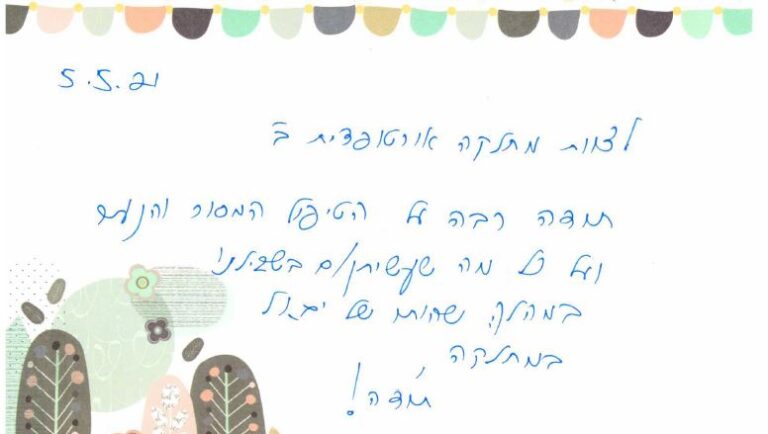 5.5.21
לצוות מחלקה אורטופדית ב'
תודה רבה על הטיפול המסור והנעים
ועל כל מה שעשיתן/ם בשבילנו
במהלך שהותו של
במחלקה
תודה!